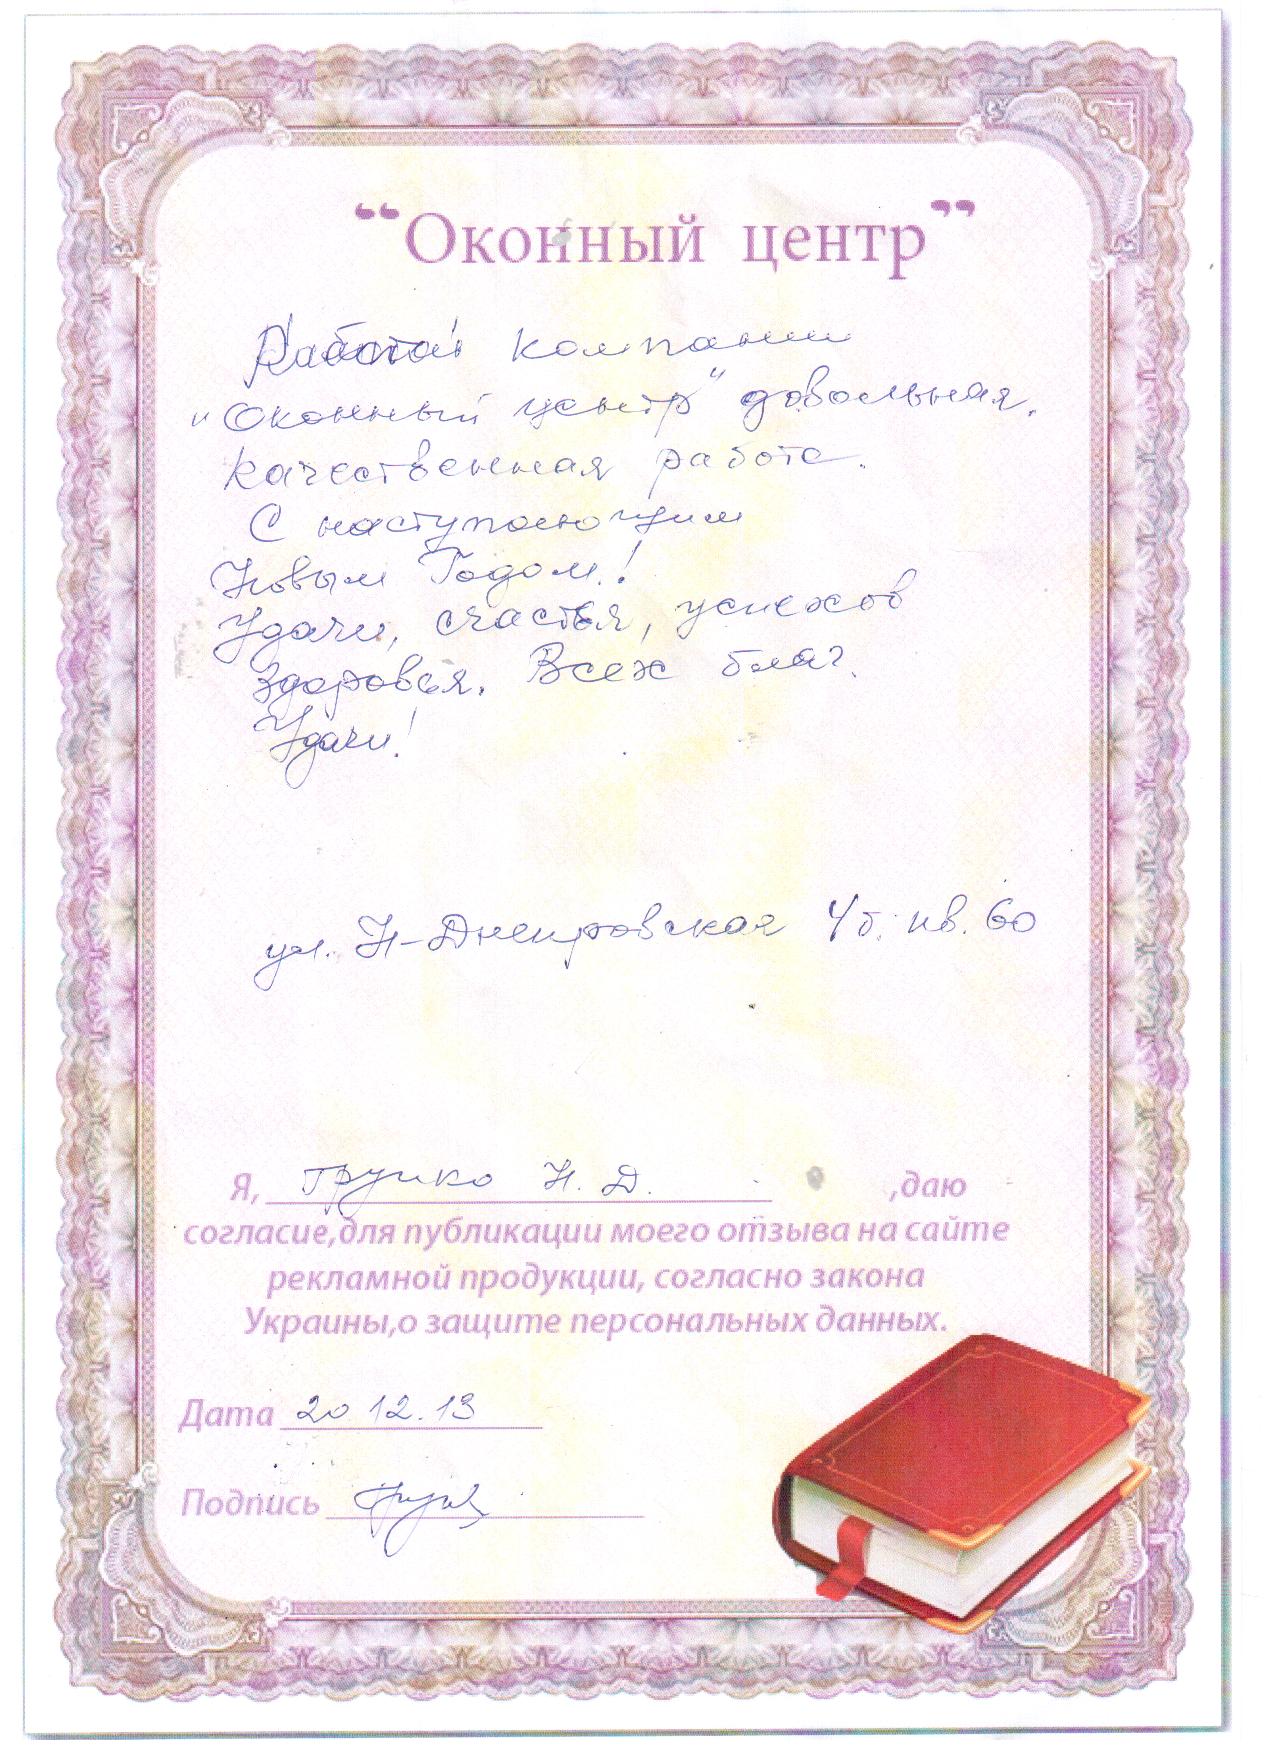 “Оконный центр”
Работой компании
"Оконный центр" довольная.
Качественная работа.
С наступающим
Новым Годом!
Удачи, счастья, успехов
здоровья. Всех благ.
Удачи!
ул. Н-Днепровская 4б. кв. 60
Я, Н. Д. ,даю
согласие,для публикации моего отзыва на сайте
рекламной продукции, согласно закона
Украины,о защите персональных данных.
Дата 20 12.13
Подпись